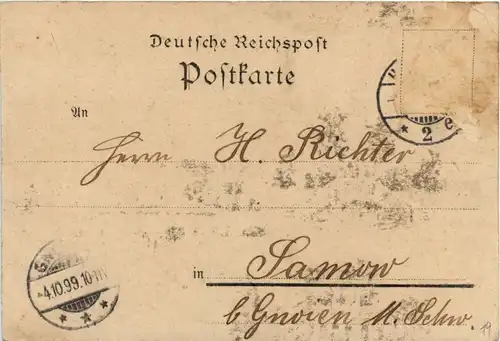 Deutsche Reichspost
Postkarte
An
Herrn H. Richter
in Samow
b. Gnoien M. Schw.
4.10.99.10-11V
* 2 e